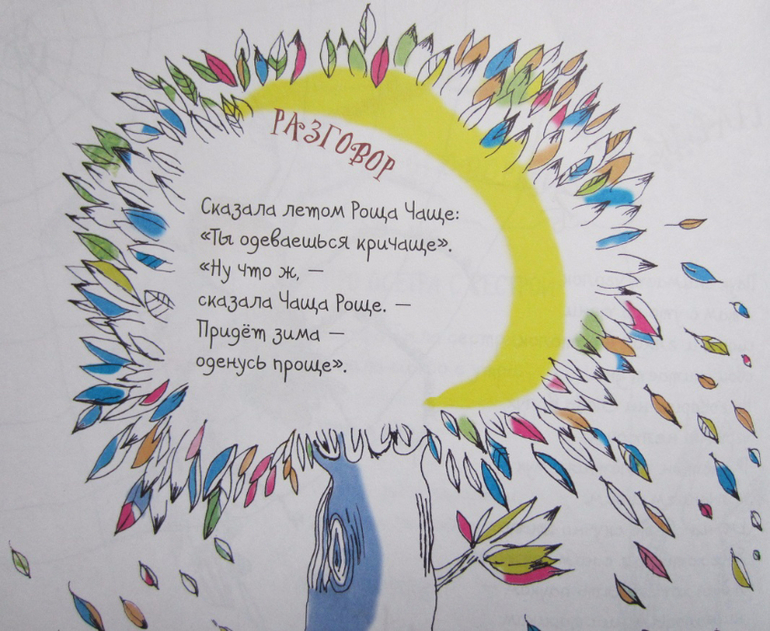 РАЗГОВОР
Сказала летом Роща Чаще:
«Ты одеваешься кричаще».
«Ну что ж, —
сказала Чаща Роще. —
Придёт зима —
оденусь проще».